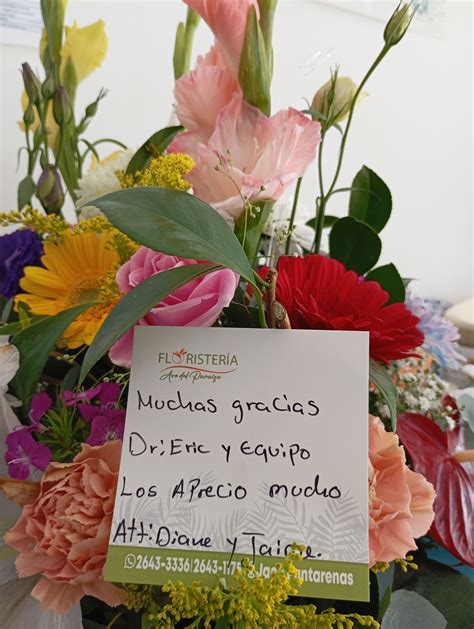 FLORISTERÍA
Ave del Paraíso
Muchas gracias
Dr: Eric y Equipo
Los Aprecio mucho
Att: Diane y Jaime.
2643-3336 2643-